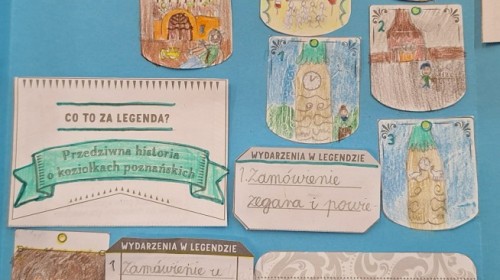 2
1
CO TO ZA LEGENDA?
Przedziwna historia
o koziołkach poznańskich
3
WYDARZENIA W LEGENDZIE
1. Zamówienie
zegara i powie
WYDARZENIA W LEGENDZIE
1 Zamówienie u